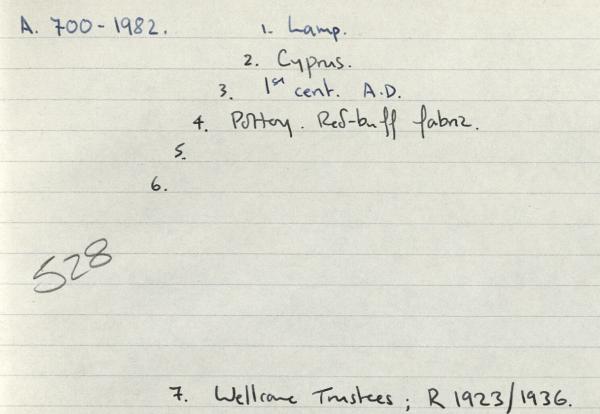 A. 700-1982. 1. Lamp.
2. Cyprus.
3. 1st cent. A.D.
4. Pottery. Red-buff fabric.
5.
6.
528
7. Wellcome Trustees; R 1923/1936.